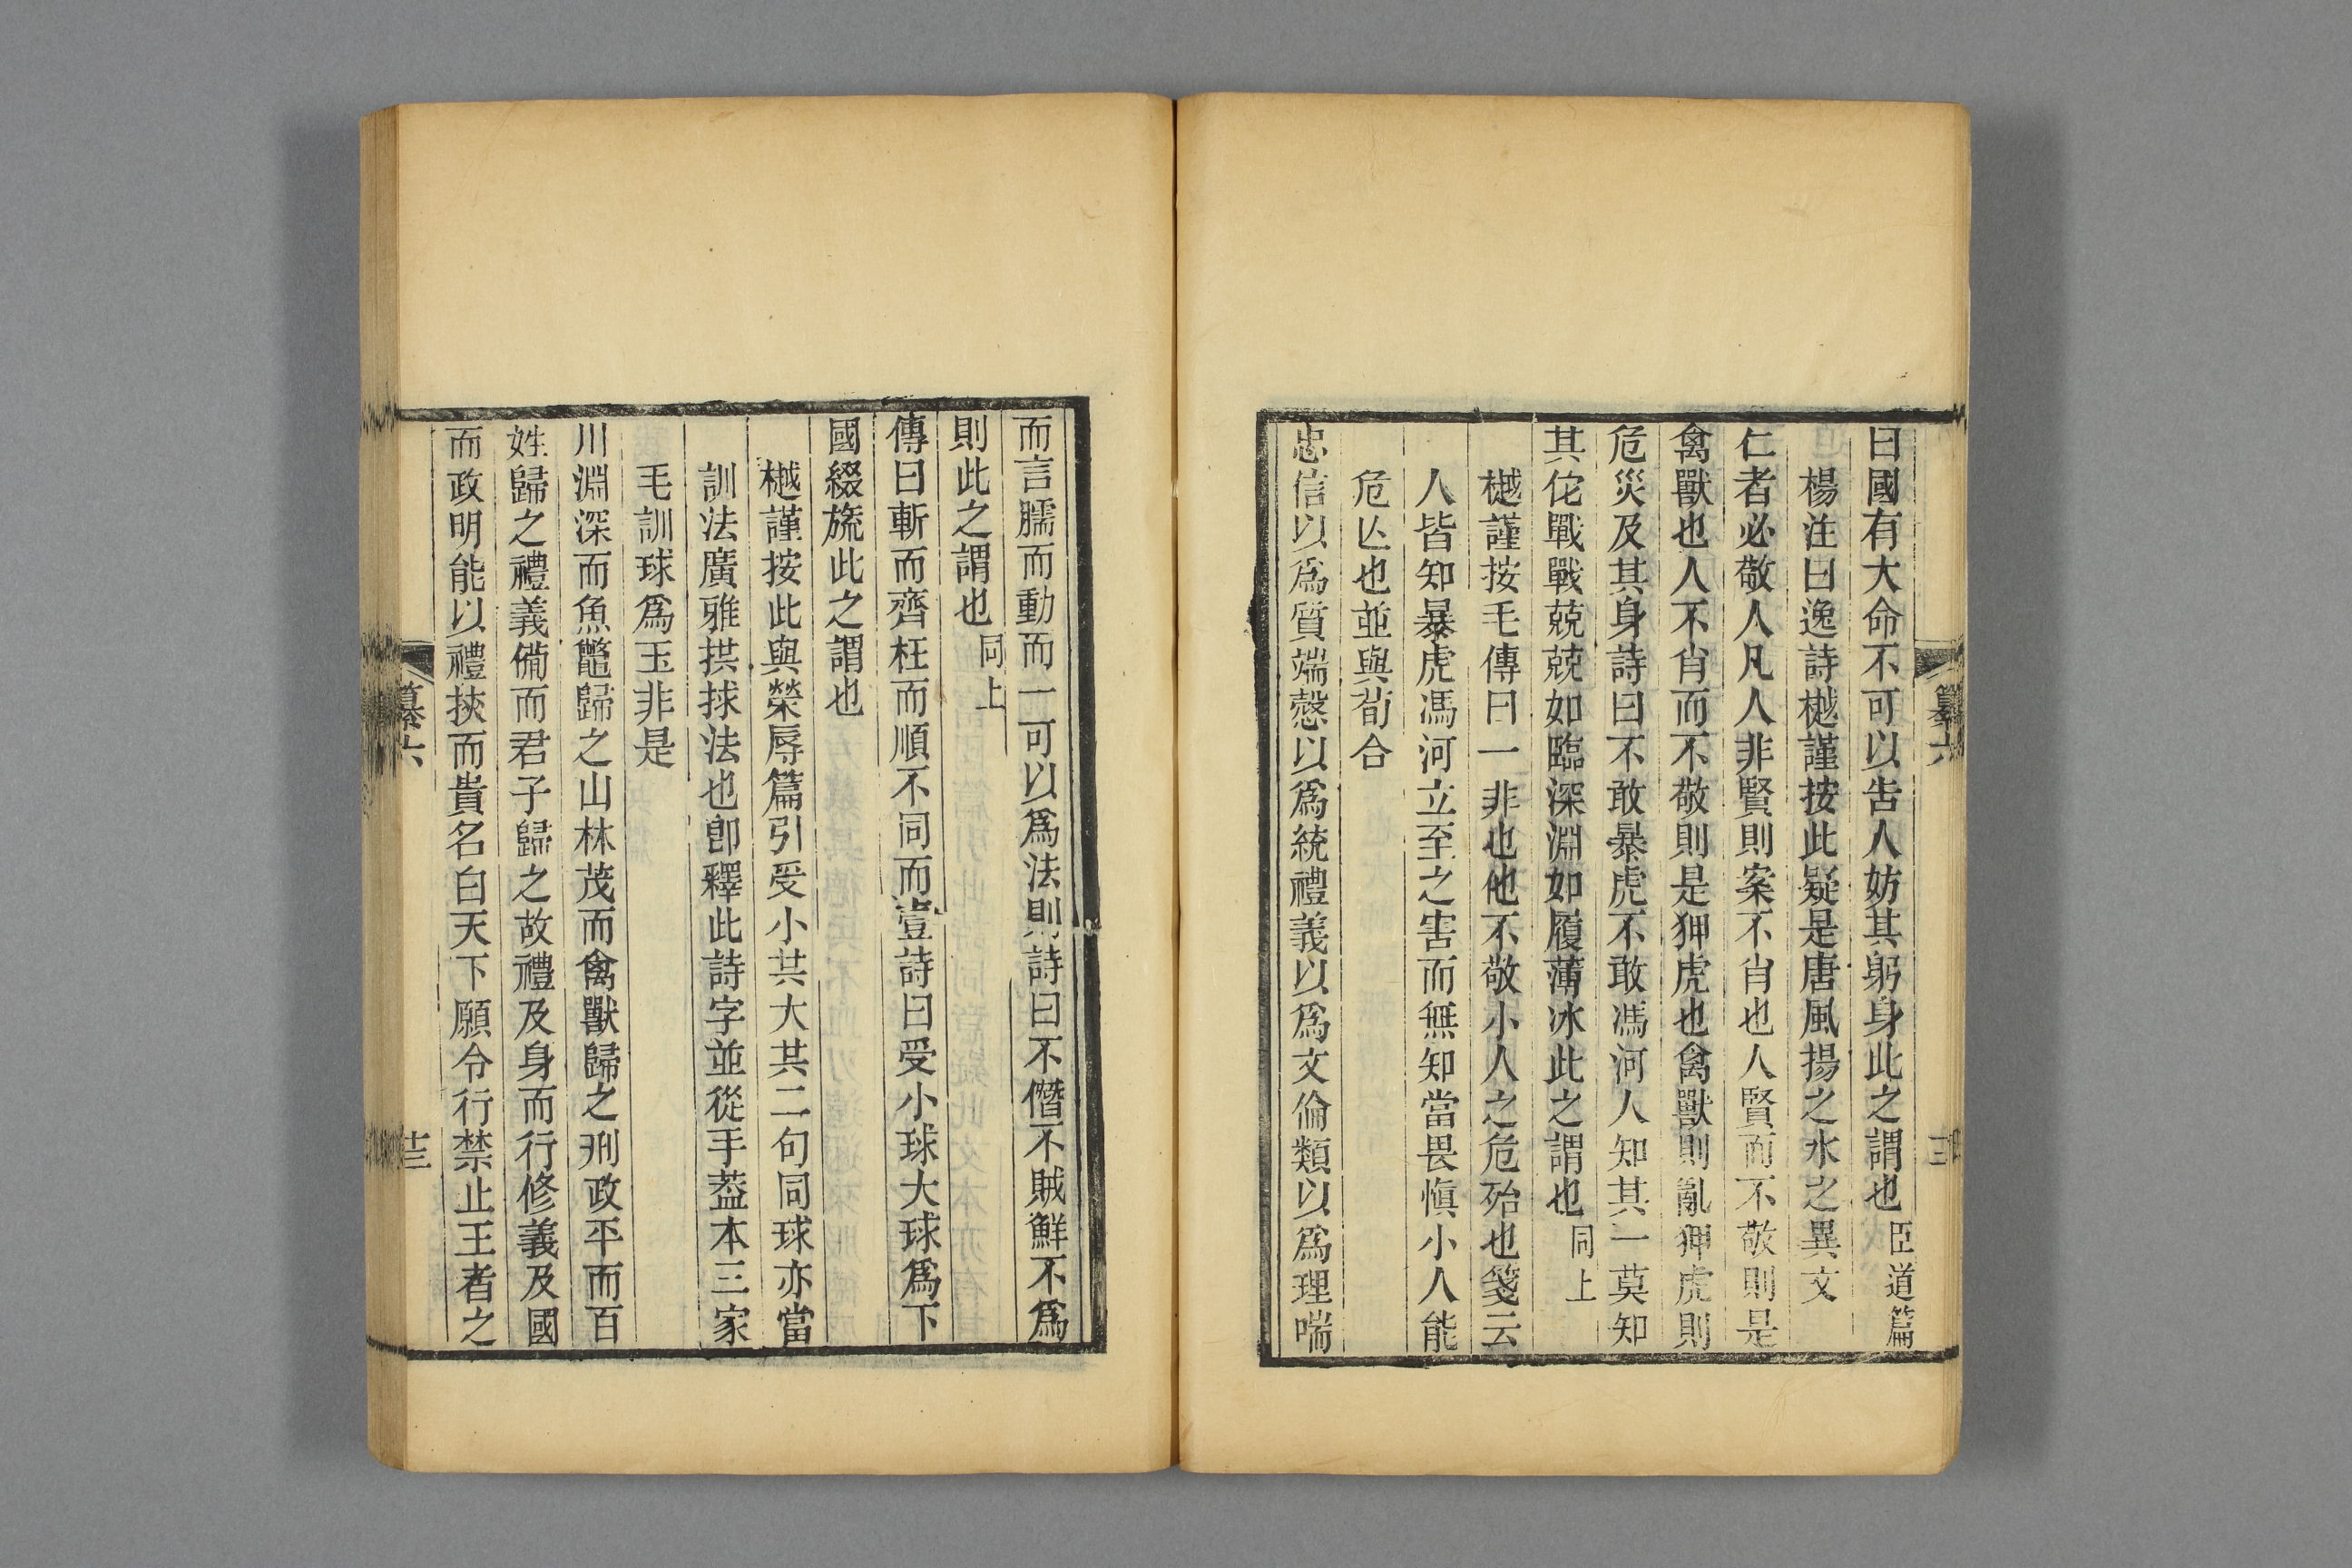 曰國有大命不可以告人妨其躬身此之謂也臣道篇
楊注曰逸詩樾謹按此疑是唐風揚之水之異文
仁者必敬人凡人非賢則案不肖也人賢而不敬則是
禽獸也人不肖而不敬則是狎虎也禽獸則亂狎虎則
危災及其身詩曰不敢暴虎不敢馮河人知其一莫知
其佗戰戰兢兢如臨深淵如履薄冰此之謂也同上
樾謹按毛傳曰一非也他不敬小人之危殆也箋云
人皆知暴虎馮河立至之害而無知當畏愼小人能
危亾也並與荀合
忠信以爲質端慤以爲統禮義以爲文倫類以爲理喘
而言臑而動而一可以爲法則詩曰不僭不賊鮮不爲
則此之謂也同上
傳曰斬而齊枉而順不同而壹詩曰受小球大球爲下
國綴旒此之謂也
樾謹按此與榮辱篇引受小共大共二句同球亦當
訓法廣雅拱捄法也卽釋此詩字並從手葢本三家
毛訓球爲玉非是
川淵深而魚鼈歸之山林茂而禽獸歸之刑政平而百
姓歸之禮義備而君子歸之故禮及身而行修義及國
而政明能以禮挾而貴名白天下願令行禁止王者之
纂六